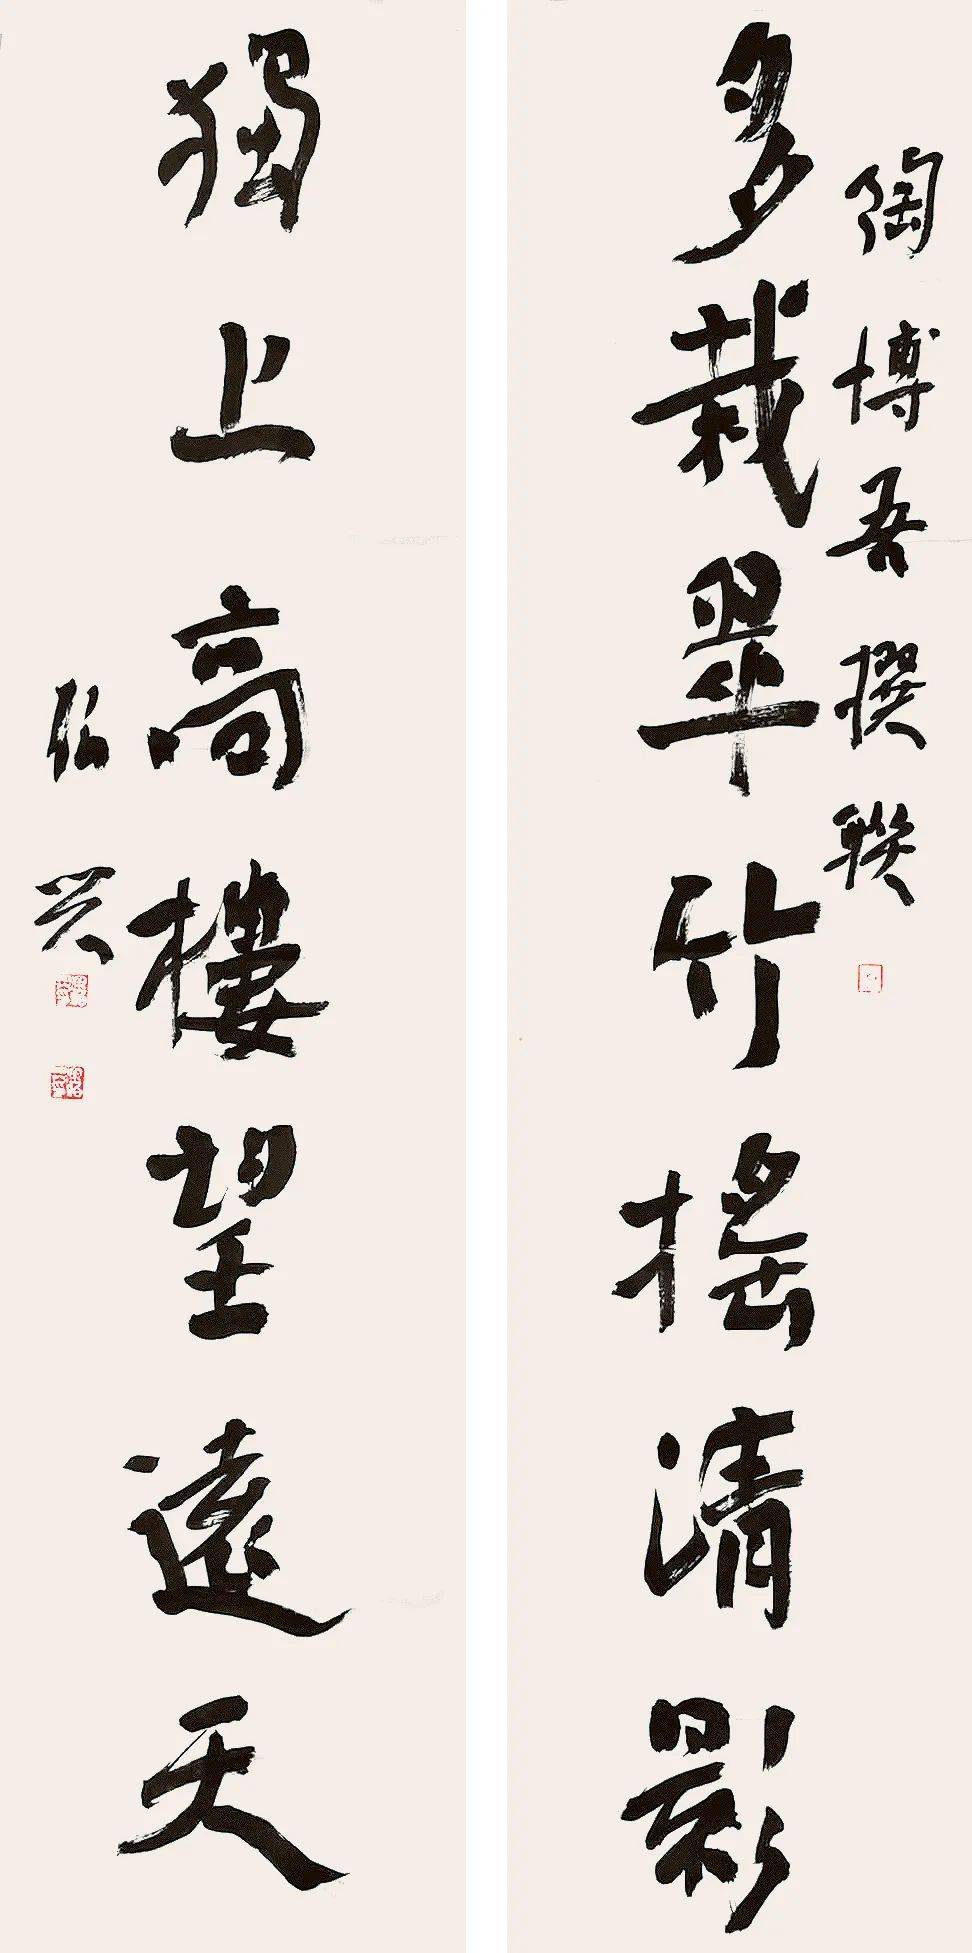 陶博吾撰聯
多栽翠竹搖清影
獨上高樓望遠天